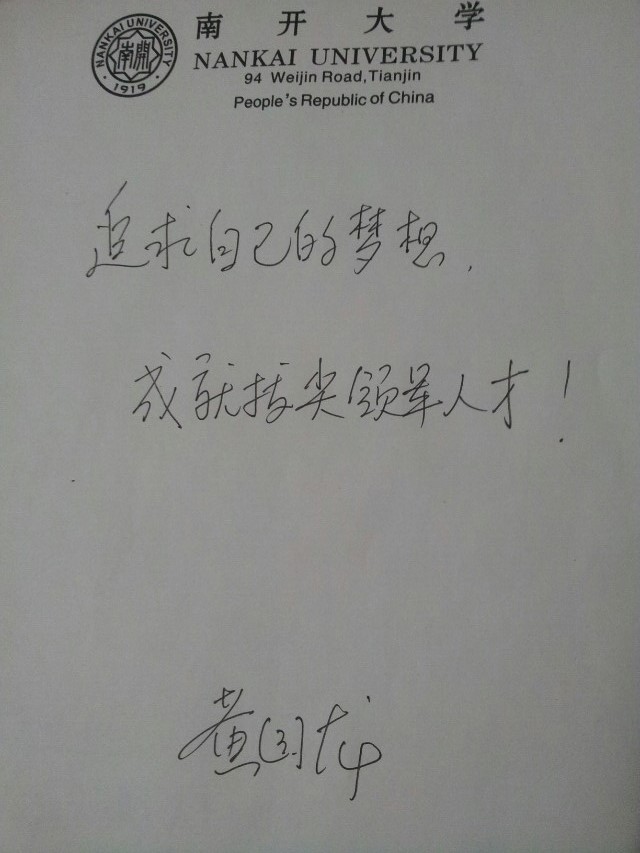 南开大学
NANKAI UNIVERSITY
94 Weijin Road, Tianjin
People's Republic of China
NANKAI UNIVERSITY
南開
1919
追求自己的梦想,
成就拔尖领军人才!
黄